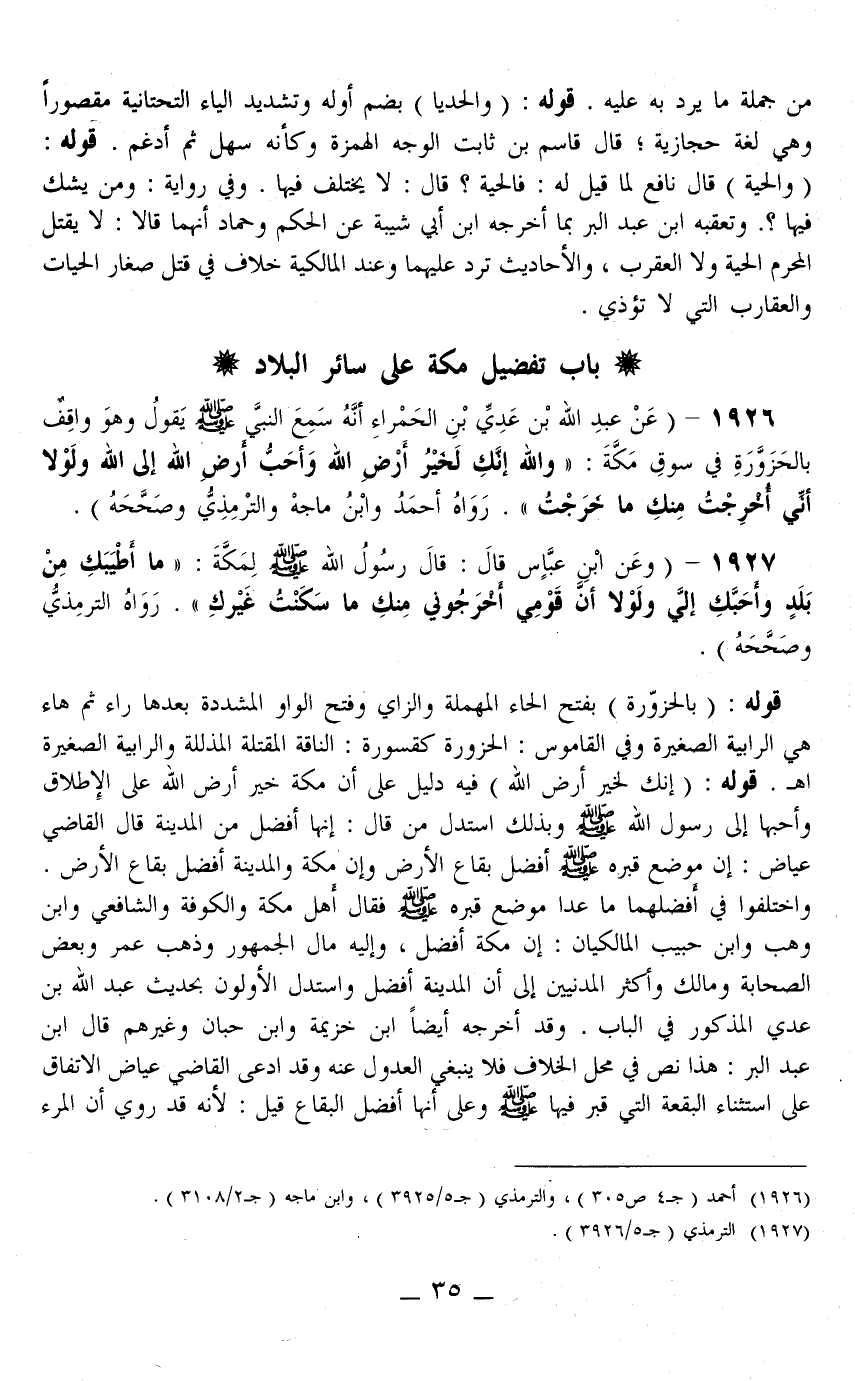 من جملة ما يرد به عليه . قوله : ( والحديا ) بضم أوله وتشديد الياء التحتانية مقصوراً
وهي لغة حجازية ؛ قال قاسم بن ثابت الوجه الهمزة وكأنه سهل ثم أدغم . قوله :
( والحية ) قال نافع لما قيل له : فالحية ؟ قال : لا يختلف فيها . وفي رواية : ومن يشك
فيها ؟. وتعقبه ابن عبد البر بما أخرجه ابن أبي شيبة عن الحكم وحماد أنهما قالا : لا يقتل
المحرم الحية ولا العقرب ، والأحاديث ترد عليهما وعند المالكية خلاف في قتل صغار الحيات
والعقارب التي لا تؤذي .
باب تفضيل مكة على سائر البلاد
١٩٢٦ – ( عَنْ عبدِ الله بْن عَدِيِّ بْنِ الحَمْراءِ أنَّهُ سَمِعَ النبيَّ ﷺ يَقولُ وهوَ واقِفٌ
بالحَزَوَّرَةِ في سوقِ مَكَّةَ : « والله إنَّكِ لَخَيْرُ أَرْضِ الله وَأحَبُّ أَرضِ الله إلى الله ولَوْلا
أنّي أُخْرِجْتُ مِنكِ ما خَرَجْتُ » . رَوَاهُ أحمَدُ وابْنُ ماجهْ والترْمِذِيُّ وصَحَّحَهُ ) .
١٩٢٧ – ( وعَن ابْنِ عبَّاسٍ قالَ : قالَ رسولُ الله ﷺ لِمَكَّةَ : « ما أَطْيَبَكِ مِنْ
بَلَدٍ وأَحَبَّكِ إليَّ ولَوْلا أنَّ قَوْمِي أَخْرَجُوني مِنكِ ما سَكَنْتُ غَيْركِ » . رَوَاهُ الترمِذيُّ
وصَحَّحَهُ ) .
قوله : ( بالحزوّرة ) بفتح الحاء المهملة والزاي وفتح الواو المشددة بعدها راء ثم هاء
هي الرابية الصغيرة وفي القاموس : الحزورة كقسورة : الناقة المقتلة المذللة والرابية الصغيرة
اهـ . قوله : ( إنك لخير أرض الله ) فيه دليل على أن مكة خير أرض الله على الإطلاق
وأحبها إلى رسول الله ﷺ وبذلك استدل من قال : إنها أفضل من المدينة قال القاضي
عياض : إن موضع قبره ﷺ أفضل بقاع الأرض وإن مكة والمدينة أفضل بقاع الأرض .
واختلفوا في أفضلهما ما عدا موضع قبره ﷺ فقال أهل مكة والكوفة والشافعي وابن
وهب وابن حبيب المالكيان : إن مكة أفضل ، وإليه مال الجمهور وذهب عمر وبعض
الصحابة ومالك وأكثر المدنيين إلى أن المدينة أفضل واستدل الأولون بحديث عبد الله بن
عدي المذكور في الباب . وقد أخرجه أيضاً ابن خزيمة وابن حبان وغيرهم قال ابن
عبد البر : هذا نص في محل الخلاف فلا ينبغي العدول عنه وقد ادعى القاضي عياض الاتفاق
على استثناء البقعة التي قبر فيها ﷺ وعلى أنها أفضل البقاع قيل : لأنه قد روي أن المرء
(١٩٢٦) أحمد ( جـ٤ ص٣٠٥ ) ، والترمذي ( جـ٣٩٢٥/٥ ) ، وابن ماجه ( جـ٣١٠٨/٢ ) .
(١٩٢٧) الترمذي ( جـ٣٩٢٦/٥ ) .
ــ ٣٥ ــ